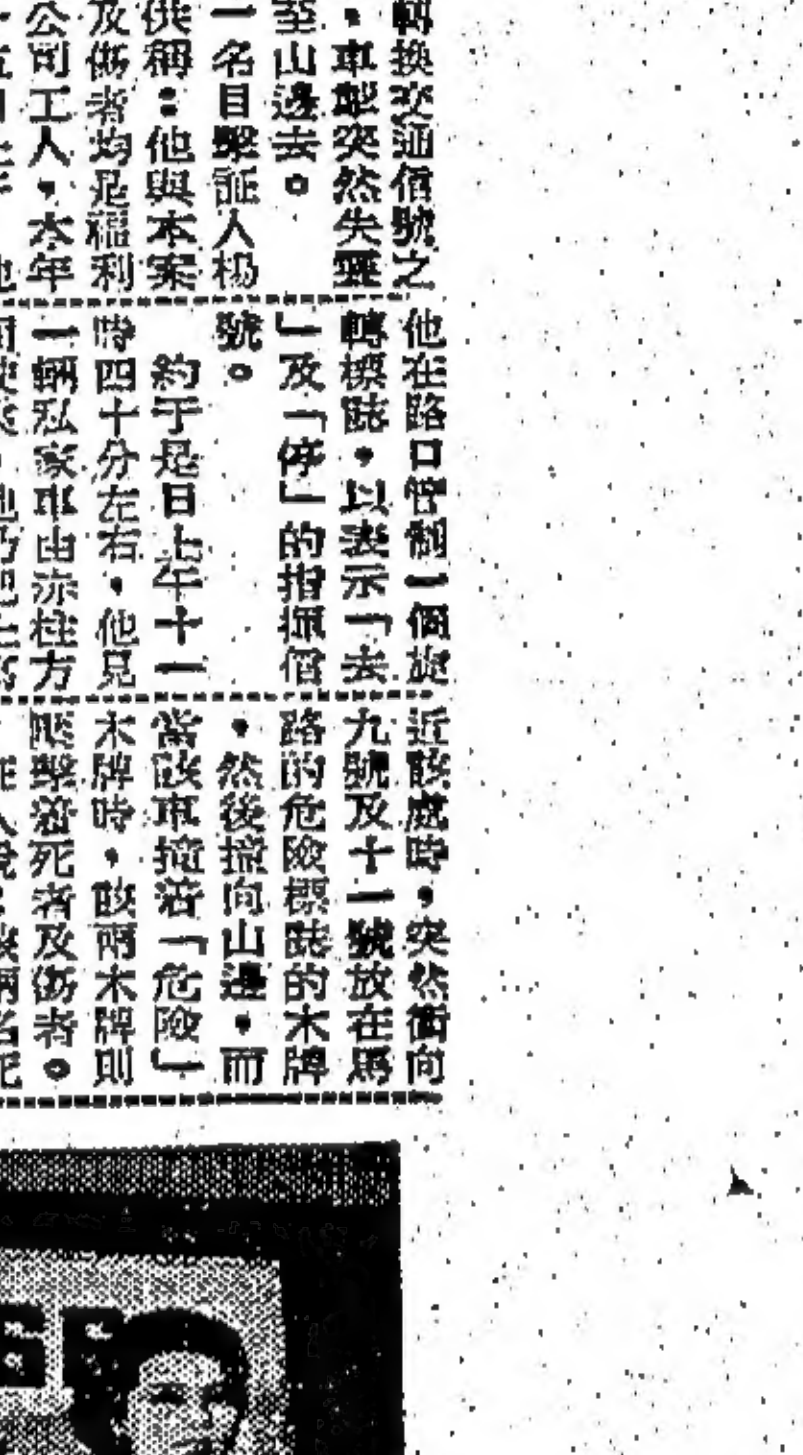 轉換交通信號之
，車掣突然失靈
至山邊去。
一名目擊証人楊
供稱：他與本案
及傷者均是福利
公司工人，本年
他在路口管制一個旋
轉標誌，以表示「去
」及「停」的指揮信
號。
約于是日上午十一
時四十分左右，他見
一輛私家車由赤柱方
近該處時，突然衝向
九號及十一號放在馬
路的危險標誌的木牌
，然後撞向山邊，而
當該車撞着「危險」
木牌時，該兩木牌則
擊着死者及傷者。